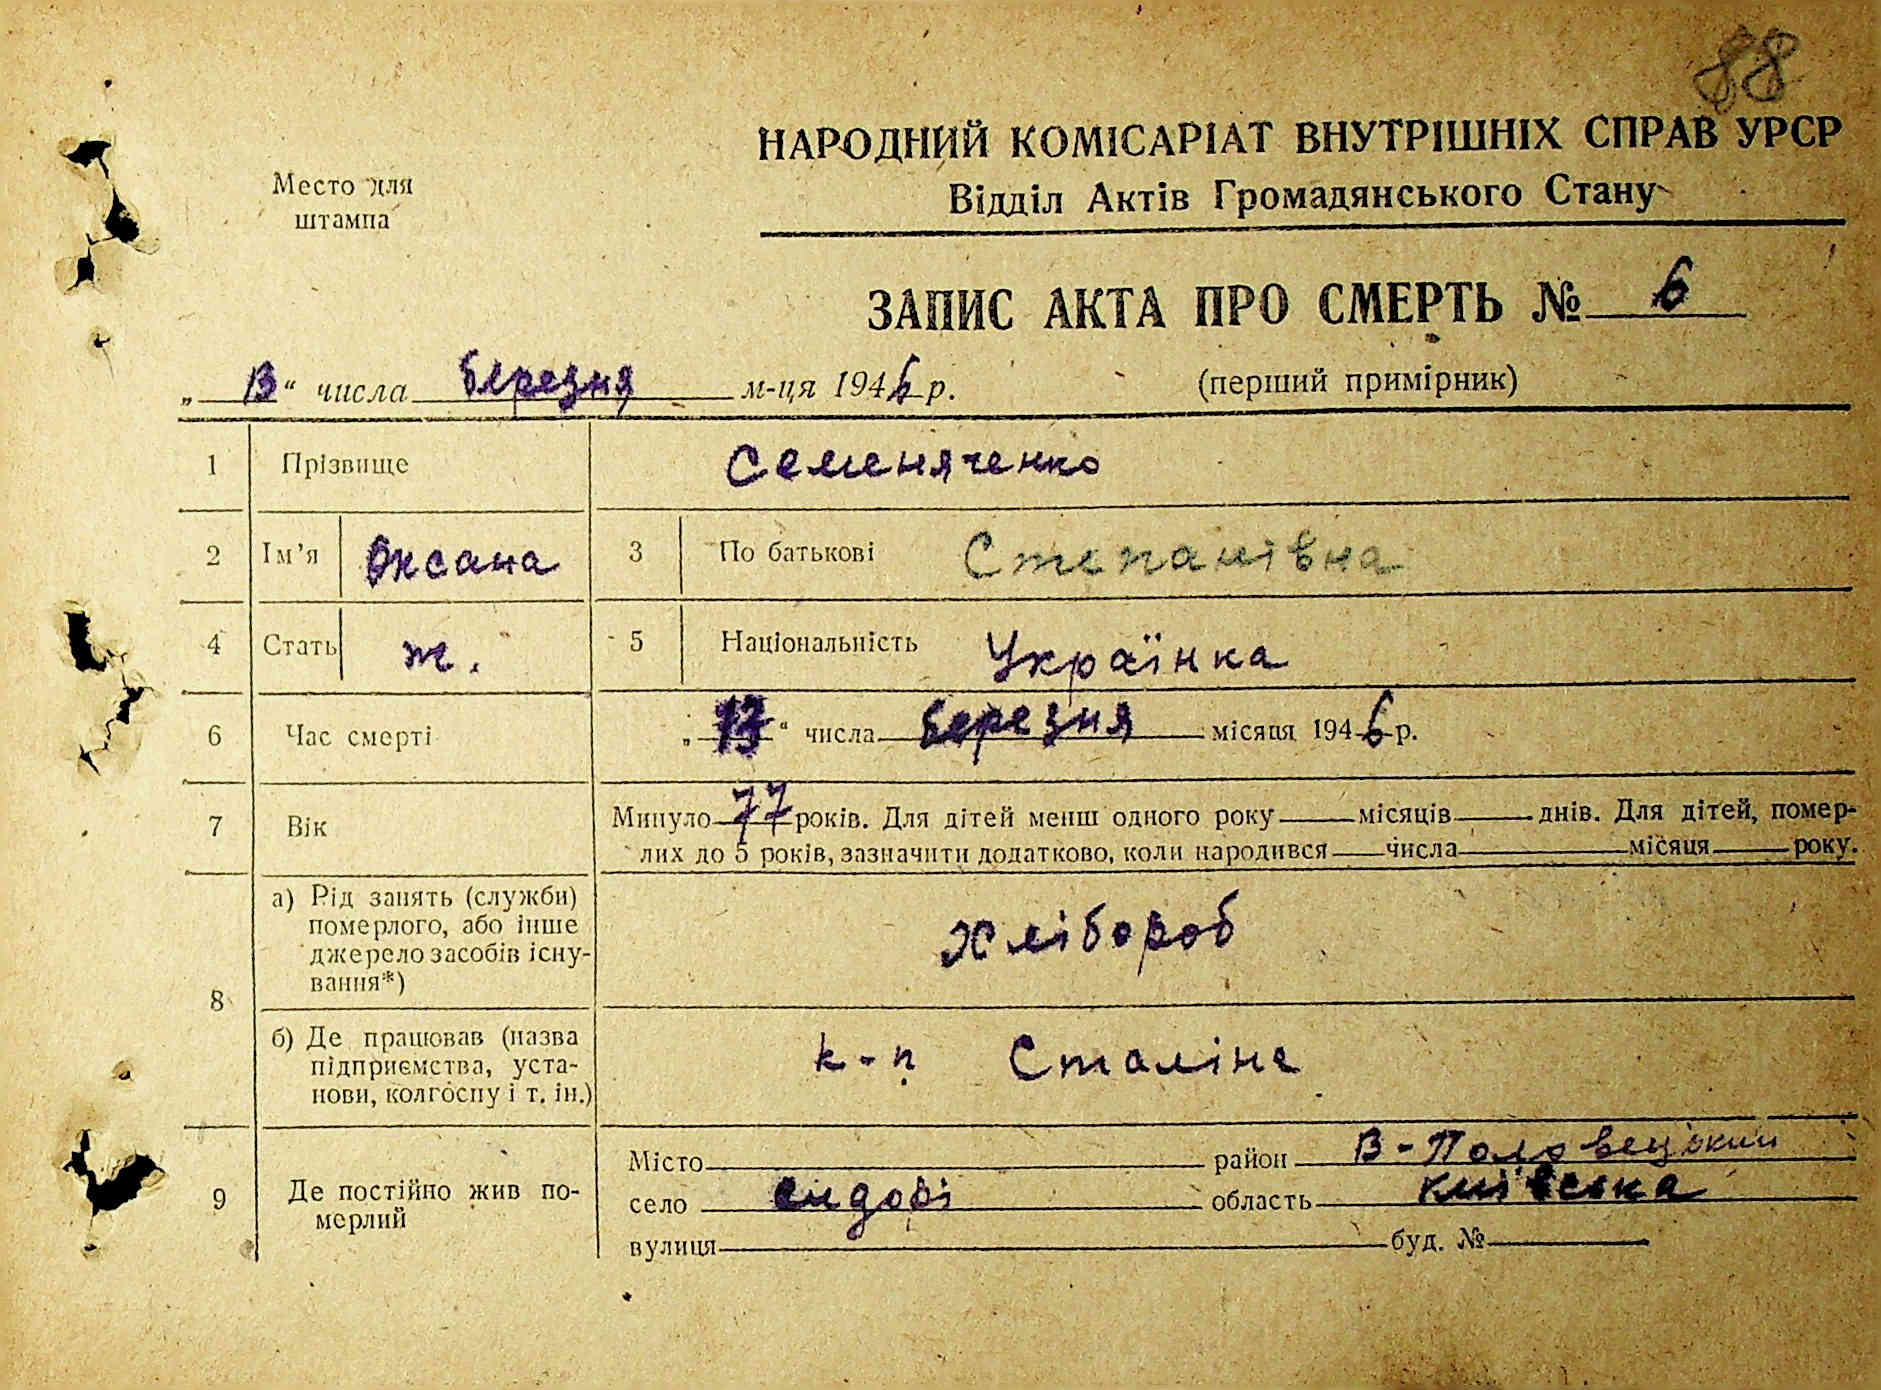 88
НАРОДНИЙ КОМІСАРІАТ ВНУТРІШНІХ СПРАВ УРСР
Место для
штампа
Відділ Актів Громадянського Стану
ЗАПИС АКТА ПРО СМЕРТЬ № 6
„ 13 “ числа березня м-ця 1946 р.
(перший примірник)
1 Прізвище Семеняченко
2 Ім’я Оксана 3 По батькові Степанівна
4 Стать ж. 5 Національність Українка
6 Час смерті „ 13 “ числа березня місяця 1946 р.
7 Вік Минуло 77 років. Для дітей менш одного року місяців днів. Для дітей, помер-
лих до 5 років, зазначити додатково, коли народився числа місяця року.
8 а) Рід занять (служби)
померлого, або інше
джерело засобів існу-
вання*)
Хлібороб
б) Де працював (назва
підприємства, уста-
нови, колгоспу і т. ін.)
к-п Сталіна
9 Де постійно жив по-
мерлий
Місто район В-Половецький
село область Київська
вулиця буд. №